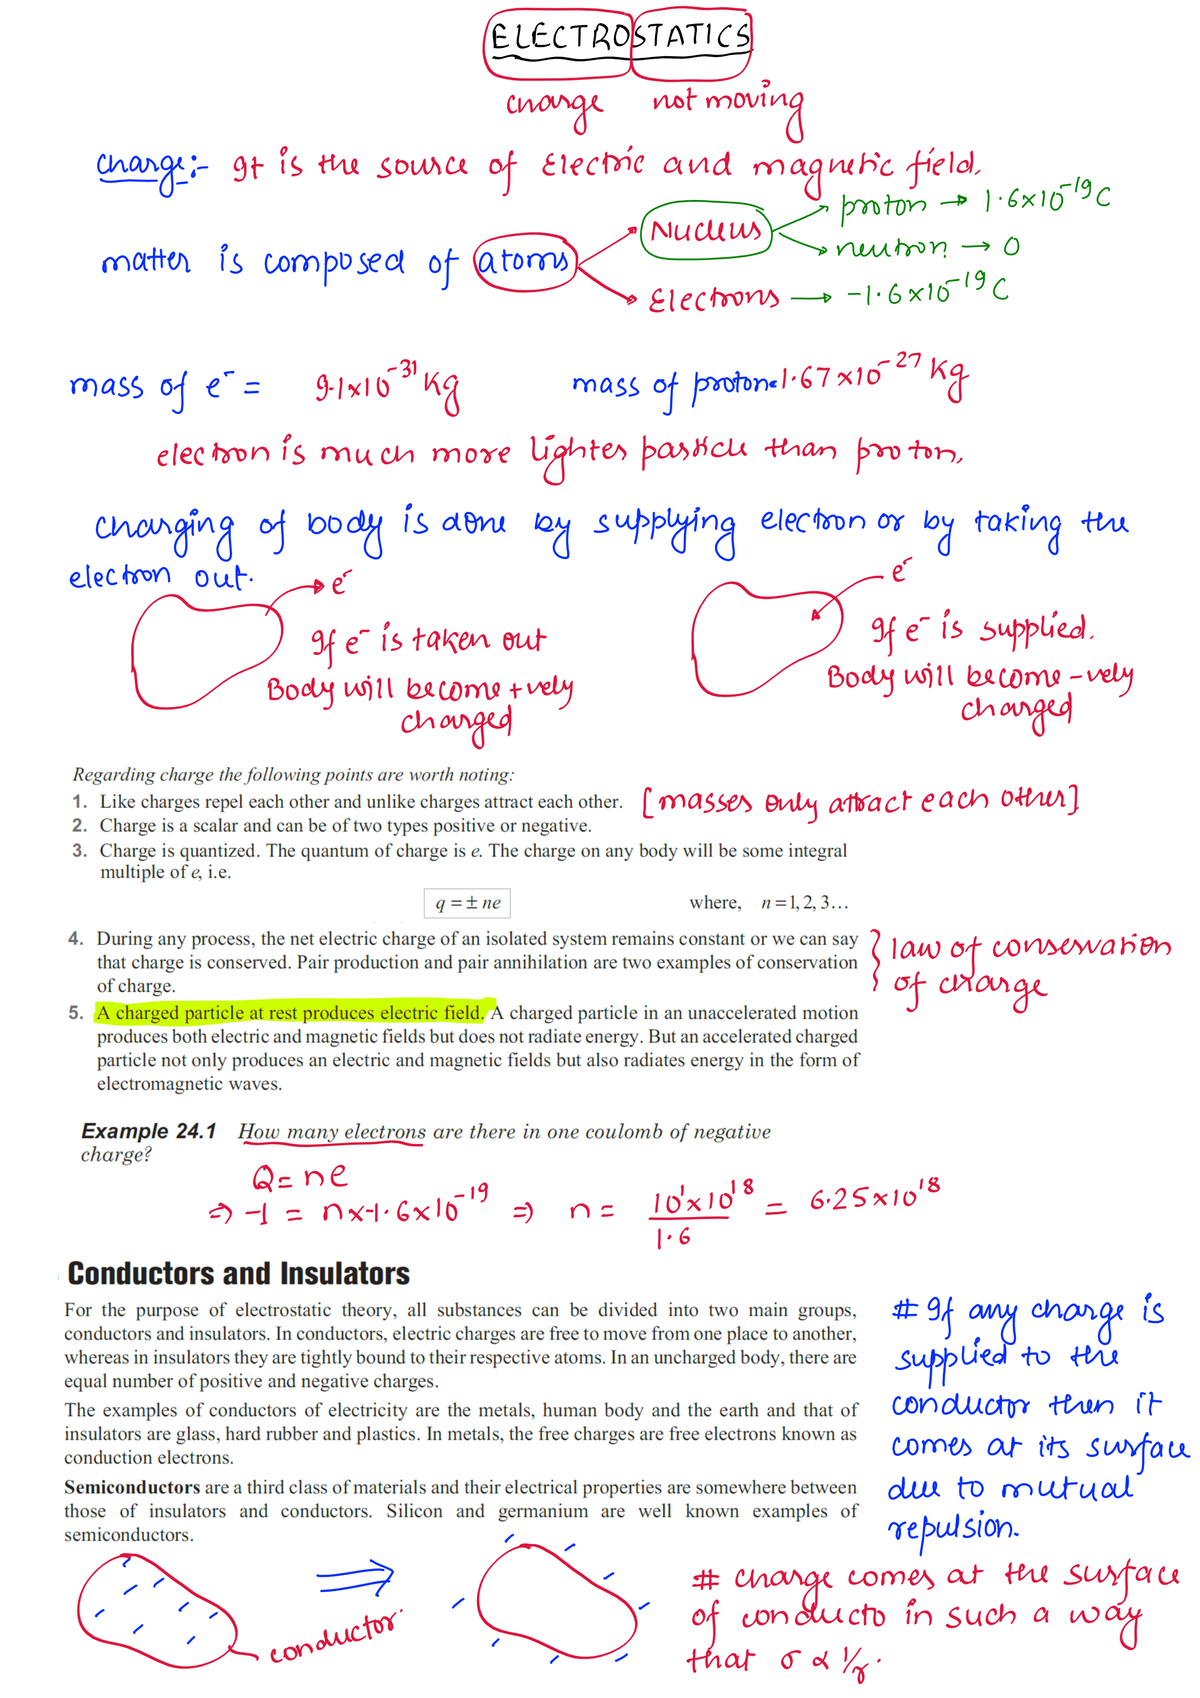 ELECTROSTATICS
charge not moving
charge:- It is the source of Electric and magnetic field.
matter is composed of atoms
Nucleus
proton → 1.6×10⁻¹⁹C
neutron → 0
Electrons → -1.6×10⁻¹⁹C
mass of e⁻ = 9.1×10⁻³¹ Kg mass of proton=1.67×10⁻²⁷ Kg
electron is much more lighter particle than proton.
charging of body is done by supplying electron or by taking the
electron out.
e⁻
If e⁻ is taken out
Body will become +vely
charged
e⁻
If e⁻ is supplied.
Body will become -vely
charged
Regarding charge the following points are worth noting:
1. Like charges repel each other and unlike charges attract each other. [masses only attract each other]
2. Charge is a scalar and can be of two types positive or negative.
3. Charge is quantized. The quantum of charge is e. The charge on any body will be some integral
multiple of e, i.e.
q = ± ne where, n = 1, 2, 3…
4. During any process, the net electric charge of an isolated system remains constant or we can say
that charge is conserved. Pair production and pair annihilation are two examples of conservation
of charge.
} law of conservation
of charge
5. A charged particle at rest produces electric field. A charged particle in an unaccelerated motion
produces both electric and magnetic fields but does not radiate energy. But an accelerated charged
particle not only produces an electric and magnetic fields but also radiates energy in the form of
electromagnetic waves.
Example 24.1 How many electrons are there in one coulomb of negative
charge?
Q = ne
⇒ -1 = n×-1.6×10⁻¹⁹ ⇒ n = 10¹×10¹⁸/1.6 = 6.25×10¹⁸
Conductors and Insulators
For the purpose of electrostatic theory, all substances can be divided into two main groups,
conductors and insulators. In conductors, electric charges are free to move from one place to another,
whereas in insulators they are tightly bound to their respective atoms. In an uncharged body, there are
equal number of positive and negative charges.
The examples of conductors of electricity are the metals, human body and the earth and that of
insulators are glass, hard rubber and plastics. In metals, the free charges are free electrons known as
conduction electrons.
Semiconductors are a third class of materials and their electrical properties are somewhere between
those of insulators and conductors. Silicon and germanium are well known examples of
semiconductors.
# If any charge is
supplied to the
conductor then it
comes at its surface
due to mutual
repulsion.
conductor.
# charge comes at the surface
of conducto in such a way
that σ ∝ 1/r.